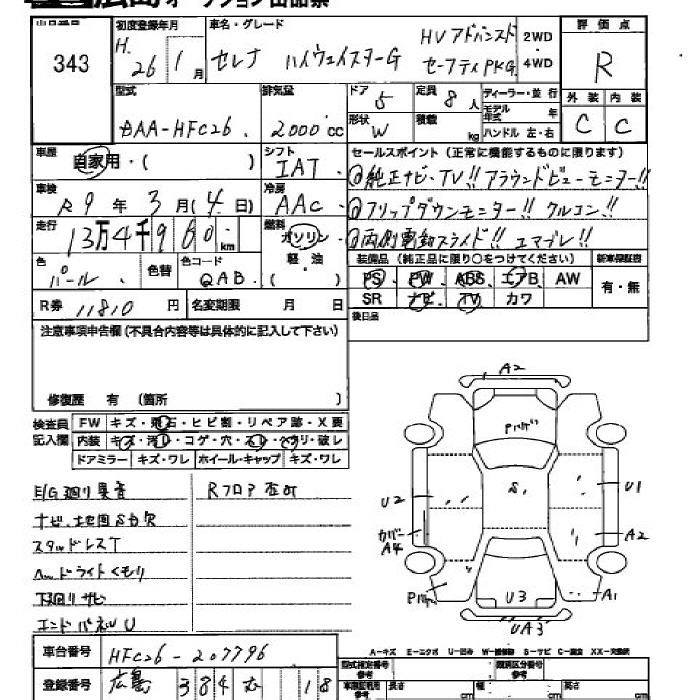 広島オークション出品票
出品番号
343
初度登録年月
H. 26年 1月
車名・グレード
セレナ ハイウェイスターG HVアドバンスド
セーフティPKG.
2WD
4WD
評価点
R
型式
DAA-HFC26.
排気量
2000cc
ドア
5
定員
8人
形状
W
積載
kg
ディーラー・並行
モデル年式 年
ハンドル 左・右
外装 内装
C C
車歴
自家用・( )
シフト
IAT.
セールスポイント(正常に機能するものに限ります)
◎純正ナビ・TV!! アラウンドビューモニター!!
車検
R9年 3月(4日)
冷房
AAC
◎フリップダウンモニター!! クルコン!!
走行
13万4千980km
燃料
ガソリン
軽油
( )
◎両側電動スライド!! エマブレ!!
色
パール.
色替
色コード
QAB.
装備品(純正品に限り○をつけてください)
新車保証書
PS. PW. ABS エアB. AW
SR ナビ. TV. カワ
有・無
R券 11810円
名変期限 月 日
後日品
注意事項申告欄(不具合内容等は具体的に記入して下さい)
修復歴 有 (箇所 )
検査員記入欄
FW キズ・飛石・ヒビ割・リペア跡・X要
内装 キズ・汚レ・コゲ・穴・スレ・ヘタリ・破レ
ドアミラー キズ・ワレ ホイール・キャップ キズ・ワレ
E/G廻り異音
Rフロア歪
ナビ、地図SD欠
スタッドレスT
ヘッドライトくもり
下廻りサビ
エンドパネルU
A2
Pハゲ
U2
S.
U1
カバーA4
A2
Pハゲ
U3
A1
UA3
A-キズ E-エクボ U-凹み W-補修跡 S-サビ C-腐食 XX-交換済
車台番号
HFC26-207796
登録番号
広島 384 む 18
型式指定番号
参考
類別区分番号
参考
長さ cm 幅 cm 高さ cm